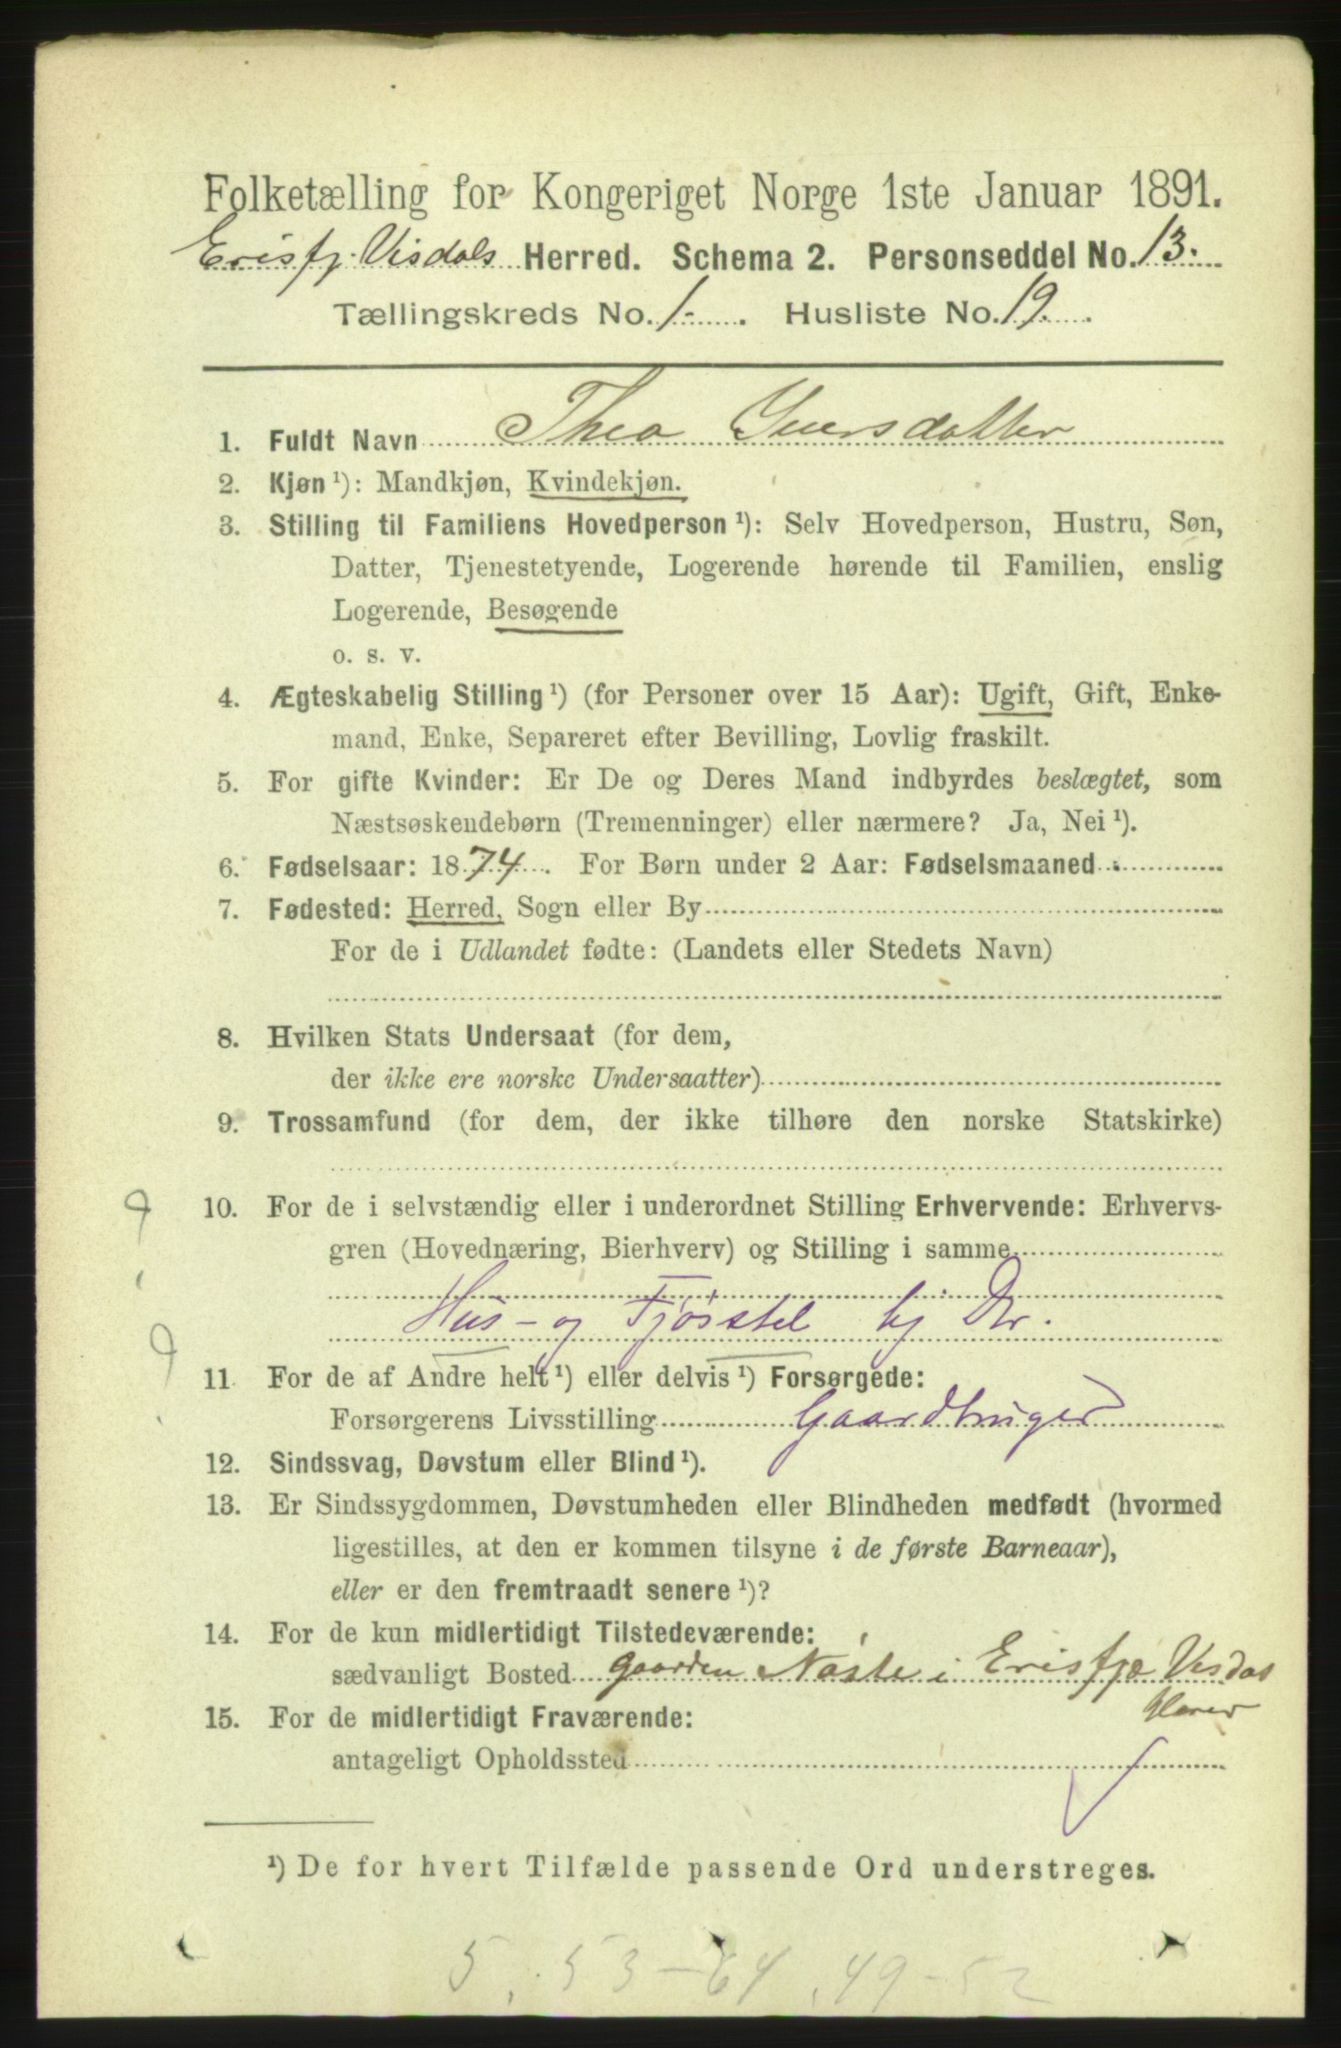 Folketælling for Kongeriget Norge 1ste Januar 1891.
Erisfj. Visdals Herred. Schema 2. Personseddel No. 13.
Tællingskreds No. 1. Husliste No. 19.
1. Fuldt Navn Thea Iversdatter
2. Kjøn ¹): Mandkjøn, Kvindekjøn.
3. Stilling til Familiens Hovedperson ¹): Selv Hovedperson, Hustru, Søn,
Datter, Tjenestetyende, Logerende hørende til Familien, enslig
Logerende, Besøgende
o. s. v.
4. Ægteskabelig Stilling ¹) (for Personer over 15 Aar): Ugift, Gift, Enke-
mand, Enke, Separeret efter Bevilling, Lovlig fraskilt.
5. For gifte Kvinder: Er De og Deres Mand indbyrdes beslægtet, som
Næstsøskendebørn (Tremenninger) eller nærmere? Ja, Nei ¹).
6. Fødselsaar: 1874. For Børn under 2 Aar: Fødselsmaaned
7. Fødested: Herred, Sogn eller By
For de i Udlandet fødte: (Landets eller Stedets Navn)
8. Hvilken Stats Undersaat (for dem,
der ikke ere norske Undersaatter)
9. Trossamfund (for dem, der ikke tilhøre den norske Statskirke)
10. For de i selvstændig eller i underordnet Stilling Erhvervende: Erhvervs-
gren (Hovednæring, Bierhverv) og Stilling i samme
Hus- og Fjøsstel
11. For de af Andre helt ¹) eller delvis ¹) Forsørgede:
Forsørgerens Livsstilling Gaardbruger
12. Sindssvag, Døvstum eller Blind ¹).
13. Er Sindssygdommen, Døvstumheden eller Blindheden medfødt (hvormed
ligestilles, at den er kommen tilsyne i de første Barneaar),
eller er den fremtraadt senere ¹)?
14. For de kun midlertidigt Tilstedeværende:
sædvanligt Bosted gaarden Nøste i Erisfj. Visdal
Herred
15. For de midlertidigt Fraværende:
antageligt Opholdssted
¹) De for hvert Tilfælde passende Ord understreges.
5. 53-64. 49-52